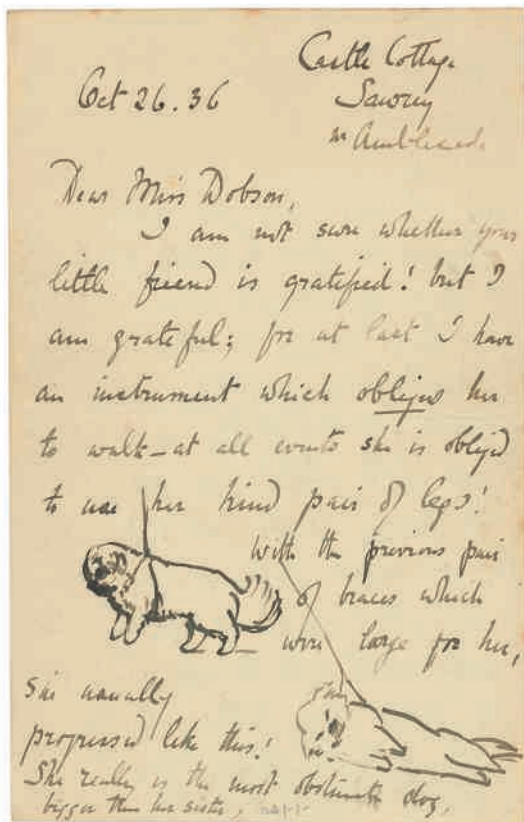 Castle Cottage
Oct 26. 36
Sawrey
nr Ambleside
Dear Miss Dobson,
I am not sure whether your
little friend is gratified! but I
am grateful; for at last I have
an instrument which obliges her
to walk – at all events she is oblig'd
to use her hind pair of legs!
With the previous pair
of braces which
were large for her,
she usually
progressed like this!
She really is the most obstinate dog,
bigger than her sister,